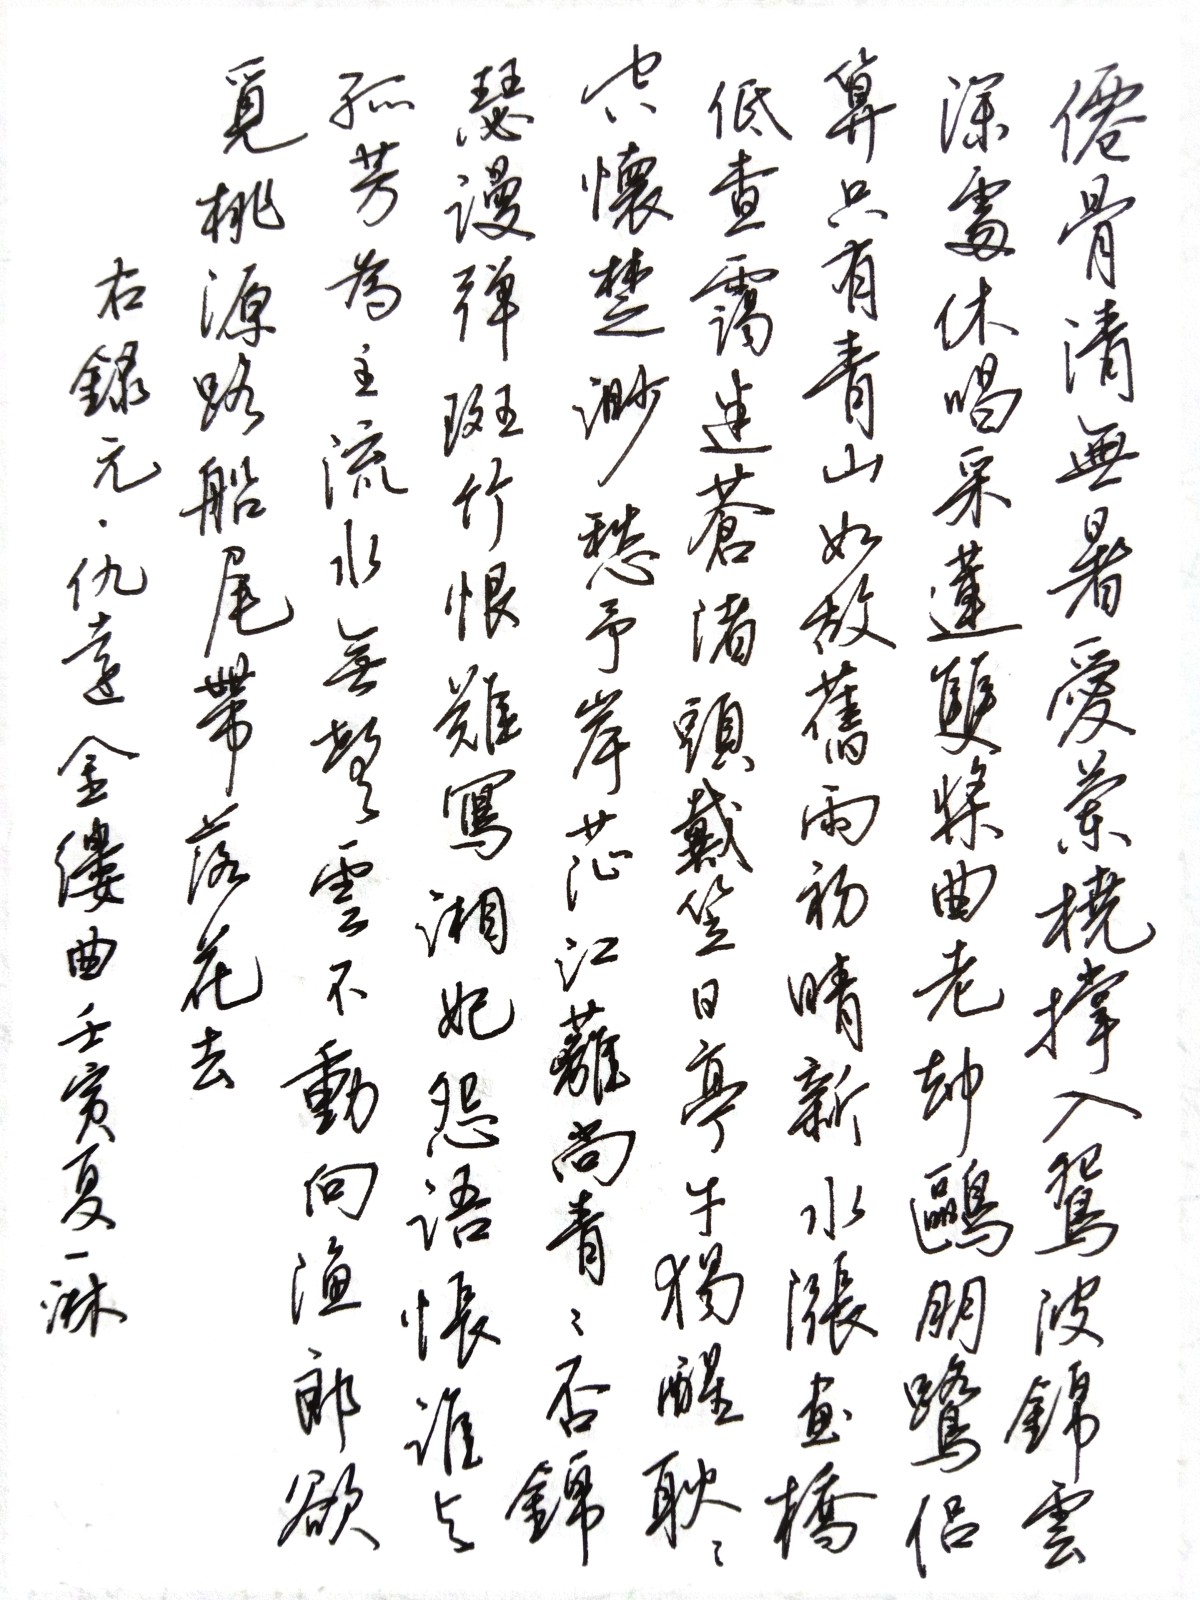 僊骨清無暑愛蘭橈撐入鴛波錦雲
深處休唱采蓮雙槳曲老却鷗朋鷺侣
算只有青山如故舊雨初晴新水漲畫橋
低查靄迷蒼渚頭戴笠日亭午獨醒耿〻
空懷楚渺愁予岸芷江蘺尚青〻否錦
瑟謾弹斑竹恨難寫湘妃怨语悵谁与
孤芳為主流水無聲雲不動向渔郎欲
覓桃源路船尾帶落花去
右録元·仇遠金縷曲壬寅夏一淋